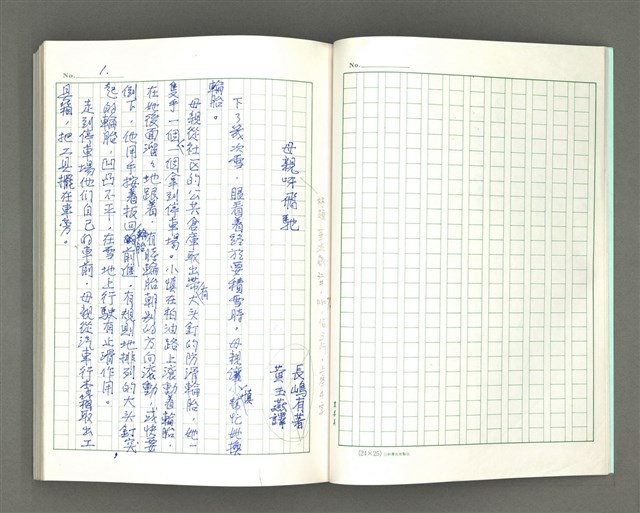 No.
1.
母親呀飛馳
長嶋有著
黃玉燕譯
下了幾次雪,眼看着路於要積雪時,母親讓小慎幫忙她換
輪胎。
母親從社区的公共倉庫取出帶有大头釘的防滑輪胎,她一
隻手一個一個拿到停車場。小慎在柏油路上滾動着輪胎,
在她後面溜々地跟着,有時輪胎朝別的方向滾動,或快要
倒下,他用手按着扳回輪胎前進,有規則地排列的大头釘突
起的輪胎,凹凸不平,在雪地上行駛有止滑作用。
走到停車場他們自己的車前,母親從汽車行李箱取出工
具箱,把工具擺在車旁。
No.
(24×25)